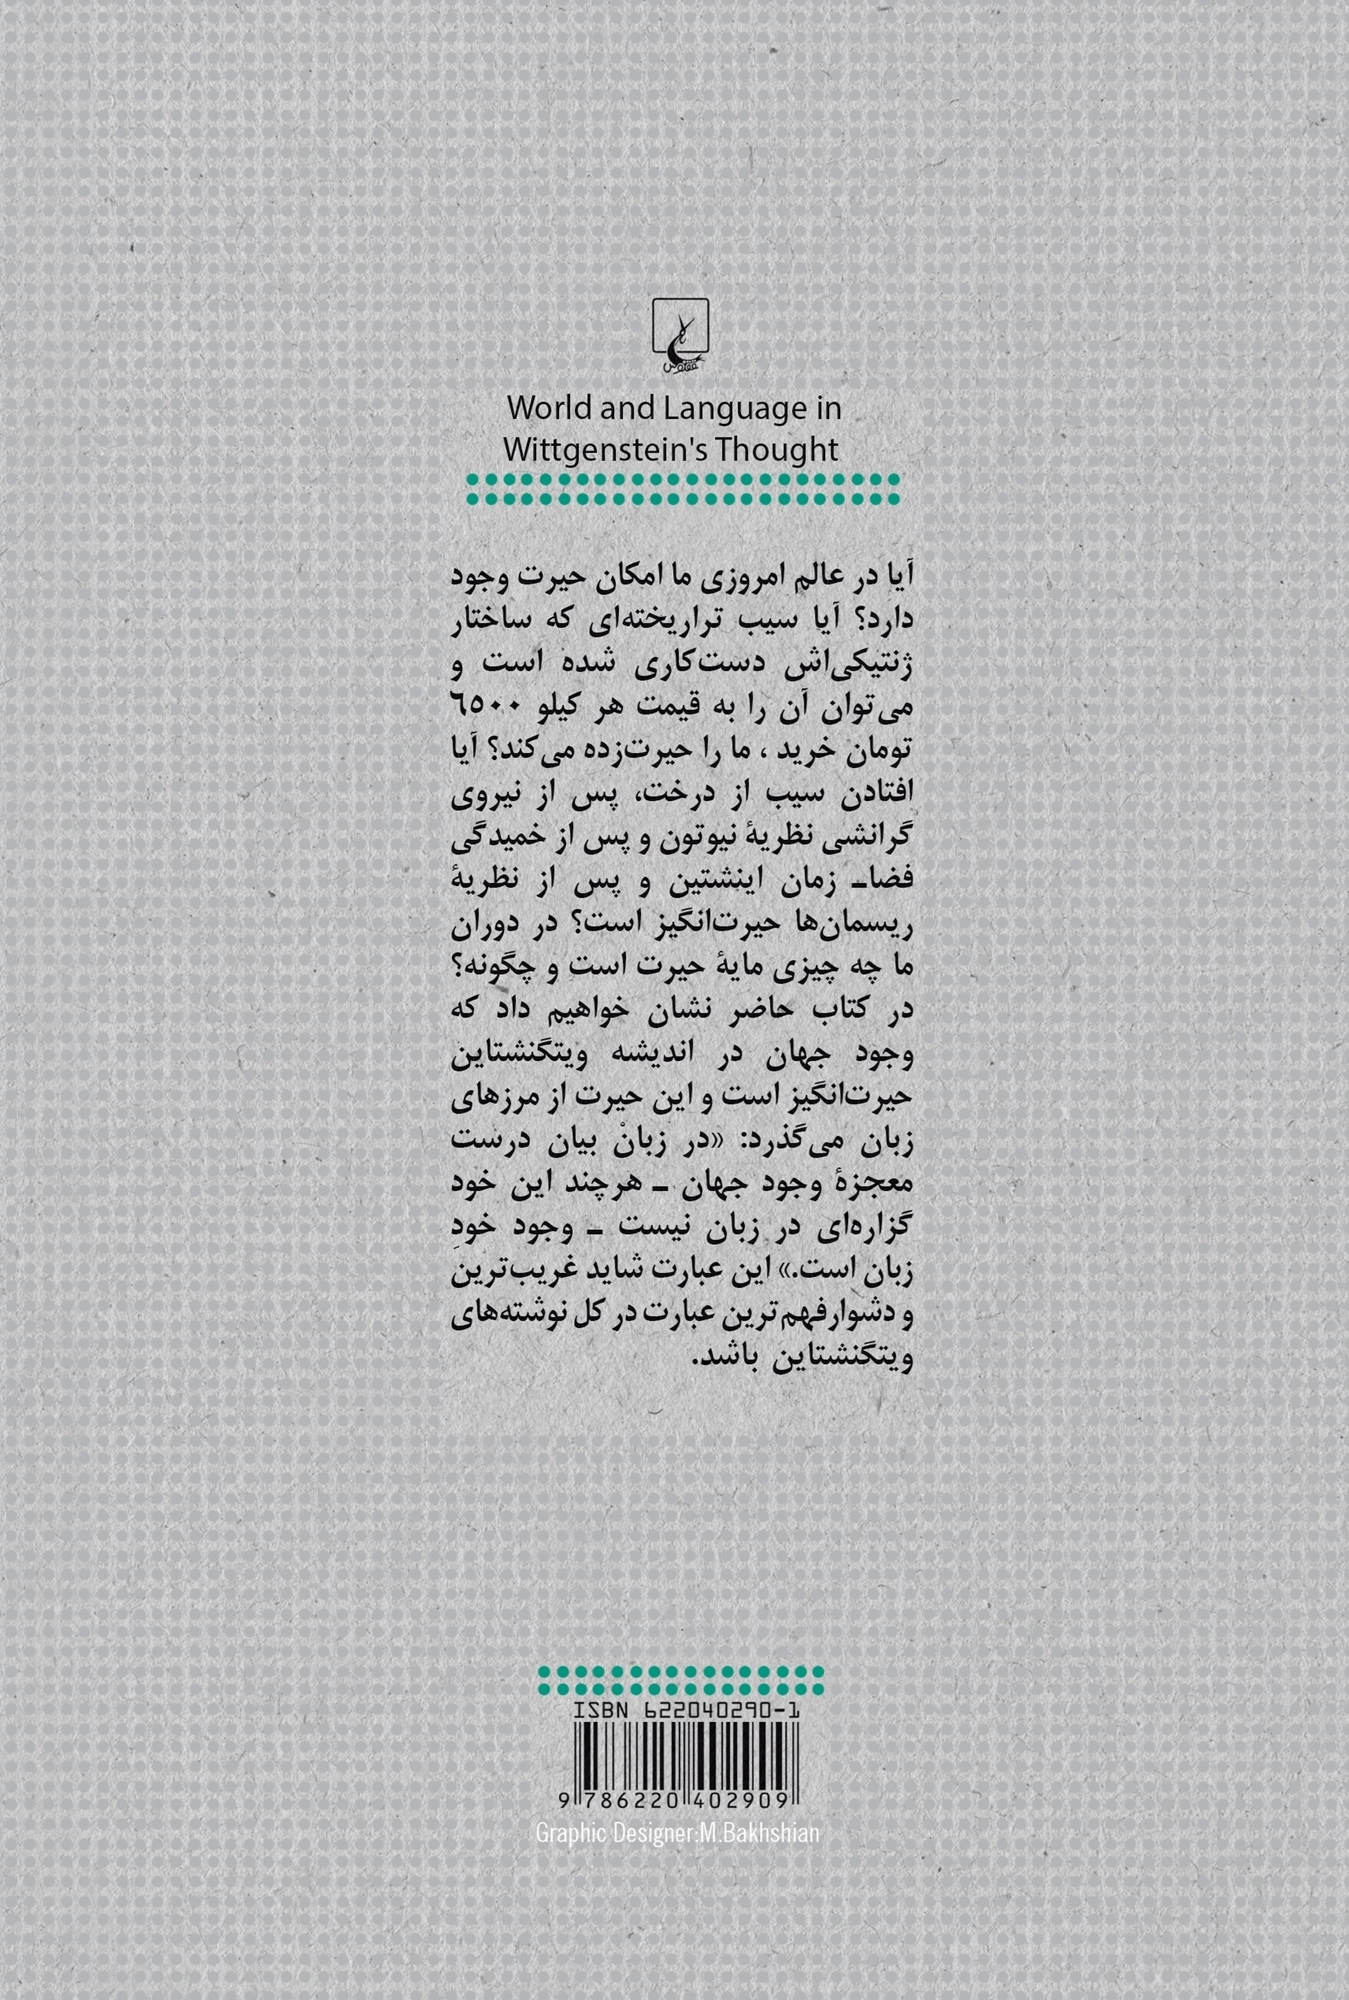 ققنوس
World and Language in
Wittgenstein's Thought
آیا در عالم امروزی ما امکان حیرت وجود
دارد؟ آیا سیب تراریخته‌ای که ساختار
ژنتیکی‌اش دست‌کاری شده است و
می‌توان آن را به قیمت هر کیلو ٦٥٠٠
تومان خرید ، ما را حیرت‌زده می‌کند؟ آیا
افتادن سیب از درخت، پس از نیروی
گرانشی نظریهٔ نیوتون و پس از خمیدگی
فضاـ زمان اینشتین و پس از نظریهٔ
ریسمان‌ها حیرت‌انگیز است؟ در دوران
ما چه چیزی مایهٔ حیرت است و چگونه؟
در کتاب حاضر نشان خواهیم داد که
وجود جهان در اندیشه ویتگنشتاین
حیرت‌انگیز است و این حیرت از مرزهای
زبان می‌گذرد: «در زبانْ بیان درست
معجزهٔ وجود جهان ـ هرچند این خود
گزاره‌ای در زبان نیست ـ وجود خودِ
زبان است.» این عبارت شاید غریب‌ترین
و دشوارفهم‌ترین عبارت در کل نوشته‌های
ویتگنشتاین باشد.
ISBN 622040290-1
9 786220 402909
Graphic Designer:M.Bakhshian